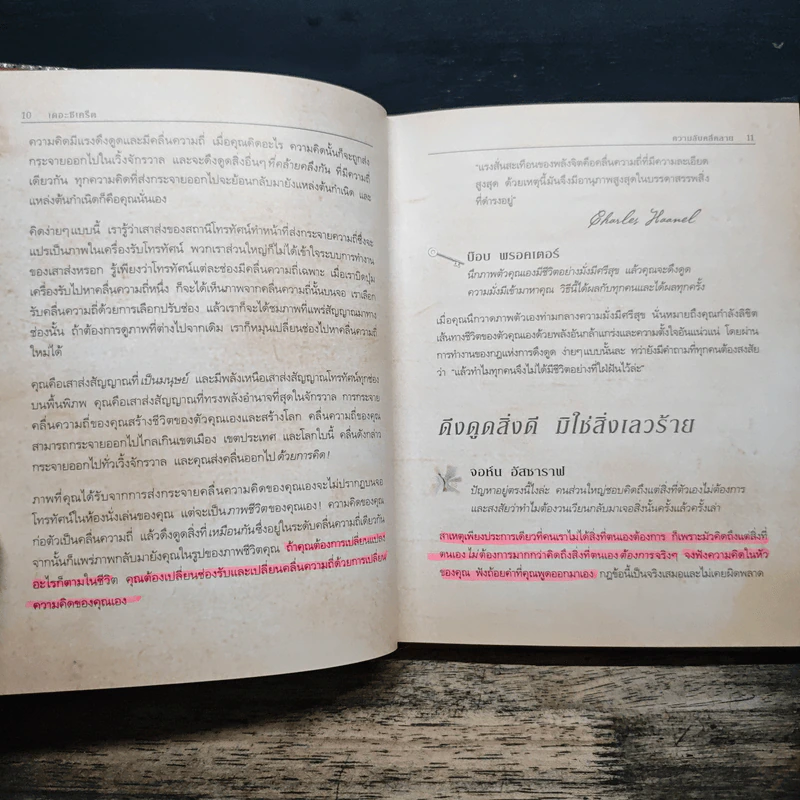 10 เดอะซีเคร็ต
ความคิดมีแรงดึงดูดและมีคลื่นความถี่ เมื่อคุณคิดอะไร ความคิดนั้นก็จะถูกส่ง
กระจายออกไปในเวิ้งจักรวาล และจะดึงดูดสิ่งอื่นๆ ที่คล้ายคลึงกัน ที่มีความถี่
เดียวกัน ทุกความคิดที่ส่งกระจายออกไปจะย้อนกลับมายังแหล่งต้นกำเนิด และ
แหล่งต้นกำเนิดก็คือคุณนั่นเอง
คิดง่ายๆ แบบนี้ เรารู้ว่าเสาส่งของสถานีโทรทัศน์ทำหน้าที่ส่งกระจายความถี่ซึ่งจะ
แปรเป็นภาพในเครื่องรับโทรทัศน์ พวกเราส่วนใหญ่ก็ไม่ได้เข้าใจระบบการทำงาน
ของเสาส่งหรอก รู้เพียงว่าโทรทัศน์แต่ละช่องมีคลื่นความถี่เฉพาะ เมื่อเราบิดปุ่ม
เครื่องรับไปหาคลื่นความถี่หนึ่ง ก็จะได้เห็นภาพจากคลื่นความถี่นั้นบนจอ เราเลือก
รับคลื่นความถี่ด้วยการเลือกปรับช่อง แล้วเราก็จะได้ชมภาพที่แพร่สัญญาณมาทาง
ช่องนั้น ถ้าต้องการดูภาพที่ต่างไปจากเดิม เราก็หมุนเปลี่ยนช่องไปหาคลื่นความถี่
ใหม่ได้
คุณคือเสาส่งสัญญาณที่เป็นมนุษย์ และมีพลังเหนือเสาส่งสัญญาณโทรทัศน์ทุกช่อง
บนพื้นพิภพ คุณคือเสาส่งสัญญาณที่ทรงพลังอำนาจที่สุดในจักรวาล การกระจาย
คลื่นความถี่ของคุณสร้างชีวิตของตัวคุณเองและสร้างโลก คลื่นความถี่ของคุณ
สามารถกระจายออกไปไกลเกินเขตเมือง เขตประเทศ และโลกใบนี้ คลื่นดังกล่าว
กระจายออกไปทั่วเวิ้งจักรวาล และคุณส่งคลื่นออกไปด้วยการคิด!
ภาพที่คุณได้รับจากการส่งกระจายคลื่นความคิดของคุณเองจะไม่ปรากฏบนจอ
โทรทัศน์ในห้องนั่งเล่นของคุณ แต่จะเป็นภาพชีวิตของคุณเอง! ความคิดของคุณ
ก่อตัวเป็นคลื่นความถี่ แล้วดึงดูดสิ่งที่เหมือนกันซึ่งอยู่ในระดับคลื่นความถี่เดียวกัน
จากนั้นก็แพร่ภาพกลับมายังคุณในรูปของภาพชีวิตคุณ ถ้าคุณต้องการเปลี่ยนแปลง
อะไรก็ตามในชีวิต คุณต้องเปลี่ยนช่องรับและเปลี่ยนคลื่นความถี่ด้วยการเปลี่ยน
ความคิดของคุณเอง
ความลับคลี่คลาย 11
"แรงสั่นสะเทือนของพลังจิตคือคลื่นความถี่ที่มีความละเอียด
สูงสุด ด้วยเหตุนี้มันจึงมีอานุภาพสูงสุดในบรรดาสรรพสิ่ง
ที่ดำรงอยู่"
Charles Haanel
บ๊อบ พรอคเตอร์
นึกภาพตัวคุณเองมีชีวิตอย่างมั่งมีศรีสุข แล้วคุณจะดึงดูด
ความมั่งมีเข้ามาหาคุณ วิธีนี้ได้ผลกับทุกคนและได้ผลทุกครั้ง
เมื่อคุณนึกวาดภาพตัวเองท่ามกลางความมั่งมีศรีสุข นั่นหมายถึงคุณกำลังลิขิต
เส้นทางชีวิตของตัวคุณเองด้วยพลังอันกล้าแกร่งและความตั้งใจอันแน่วแน่ โดยผ่าน
การทำงานของกฎแห่งการดึงดูด ง่ายๆ แบบนั้นละ ทว่ายังมีคำถามที่ทุกคนต้องสงสัย
ว่า "แล้วทำไมทุกคนจึงไม่ได้มีชีวิตอย่างที่ใฝ่ฝันไว้ล่ะ"
ดึงดูดสิ่งดี มิใช่สิ่งเลวร้าย
จอห์น อัสซาราฟ
ปัญหาอยู่ตรงนี้ไงล่ะ คนส่วนใหญ่ชอบคิดถึงแต่สิ่งที่ตัวเองไม่ต้องการ
และสงสัยว่าทำไมต้องวนเวียนกลับมาเจอสิ่งนั้นครั้งแล้วครั้งเล่า
สาเหตุเพียงประการเดียวที่คนเราไม่ได้สิ่งที่ตนเองต้องการ ก็เพราะมัวคิดถึงแต่สิ่งที่
ตนเองไม่ต้องการมากกว่าคิดถึงสิ่งที่ตนเองต้องการจริงๆ จงฟังความคิดในหัว
ของคุณ ฟังถ้อยคำที่คุณพูดออกมาเอง กฎข้อนี้เป็นจริงเสมอและไม่เคยผิดพลาด